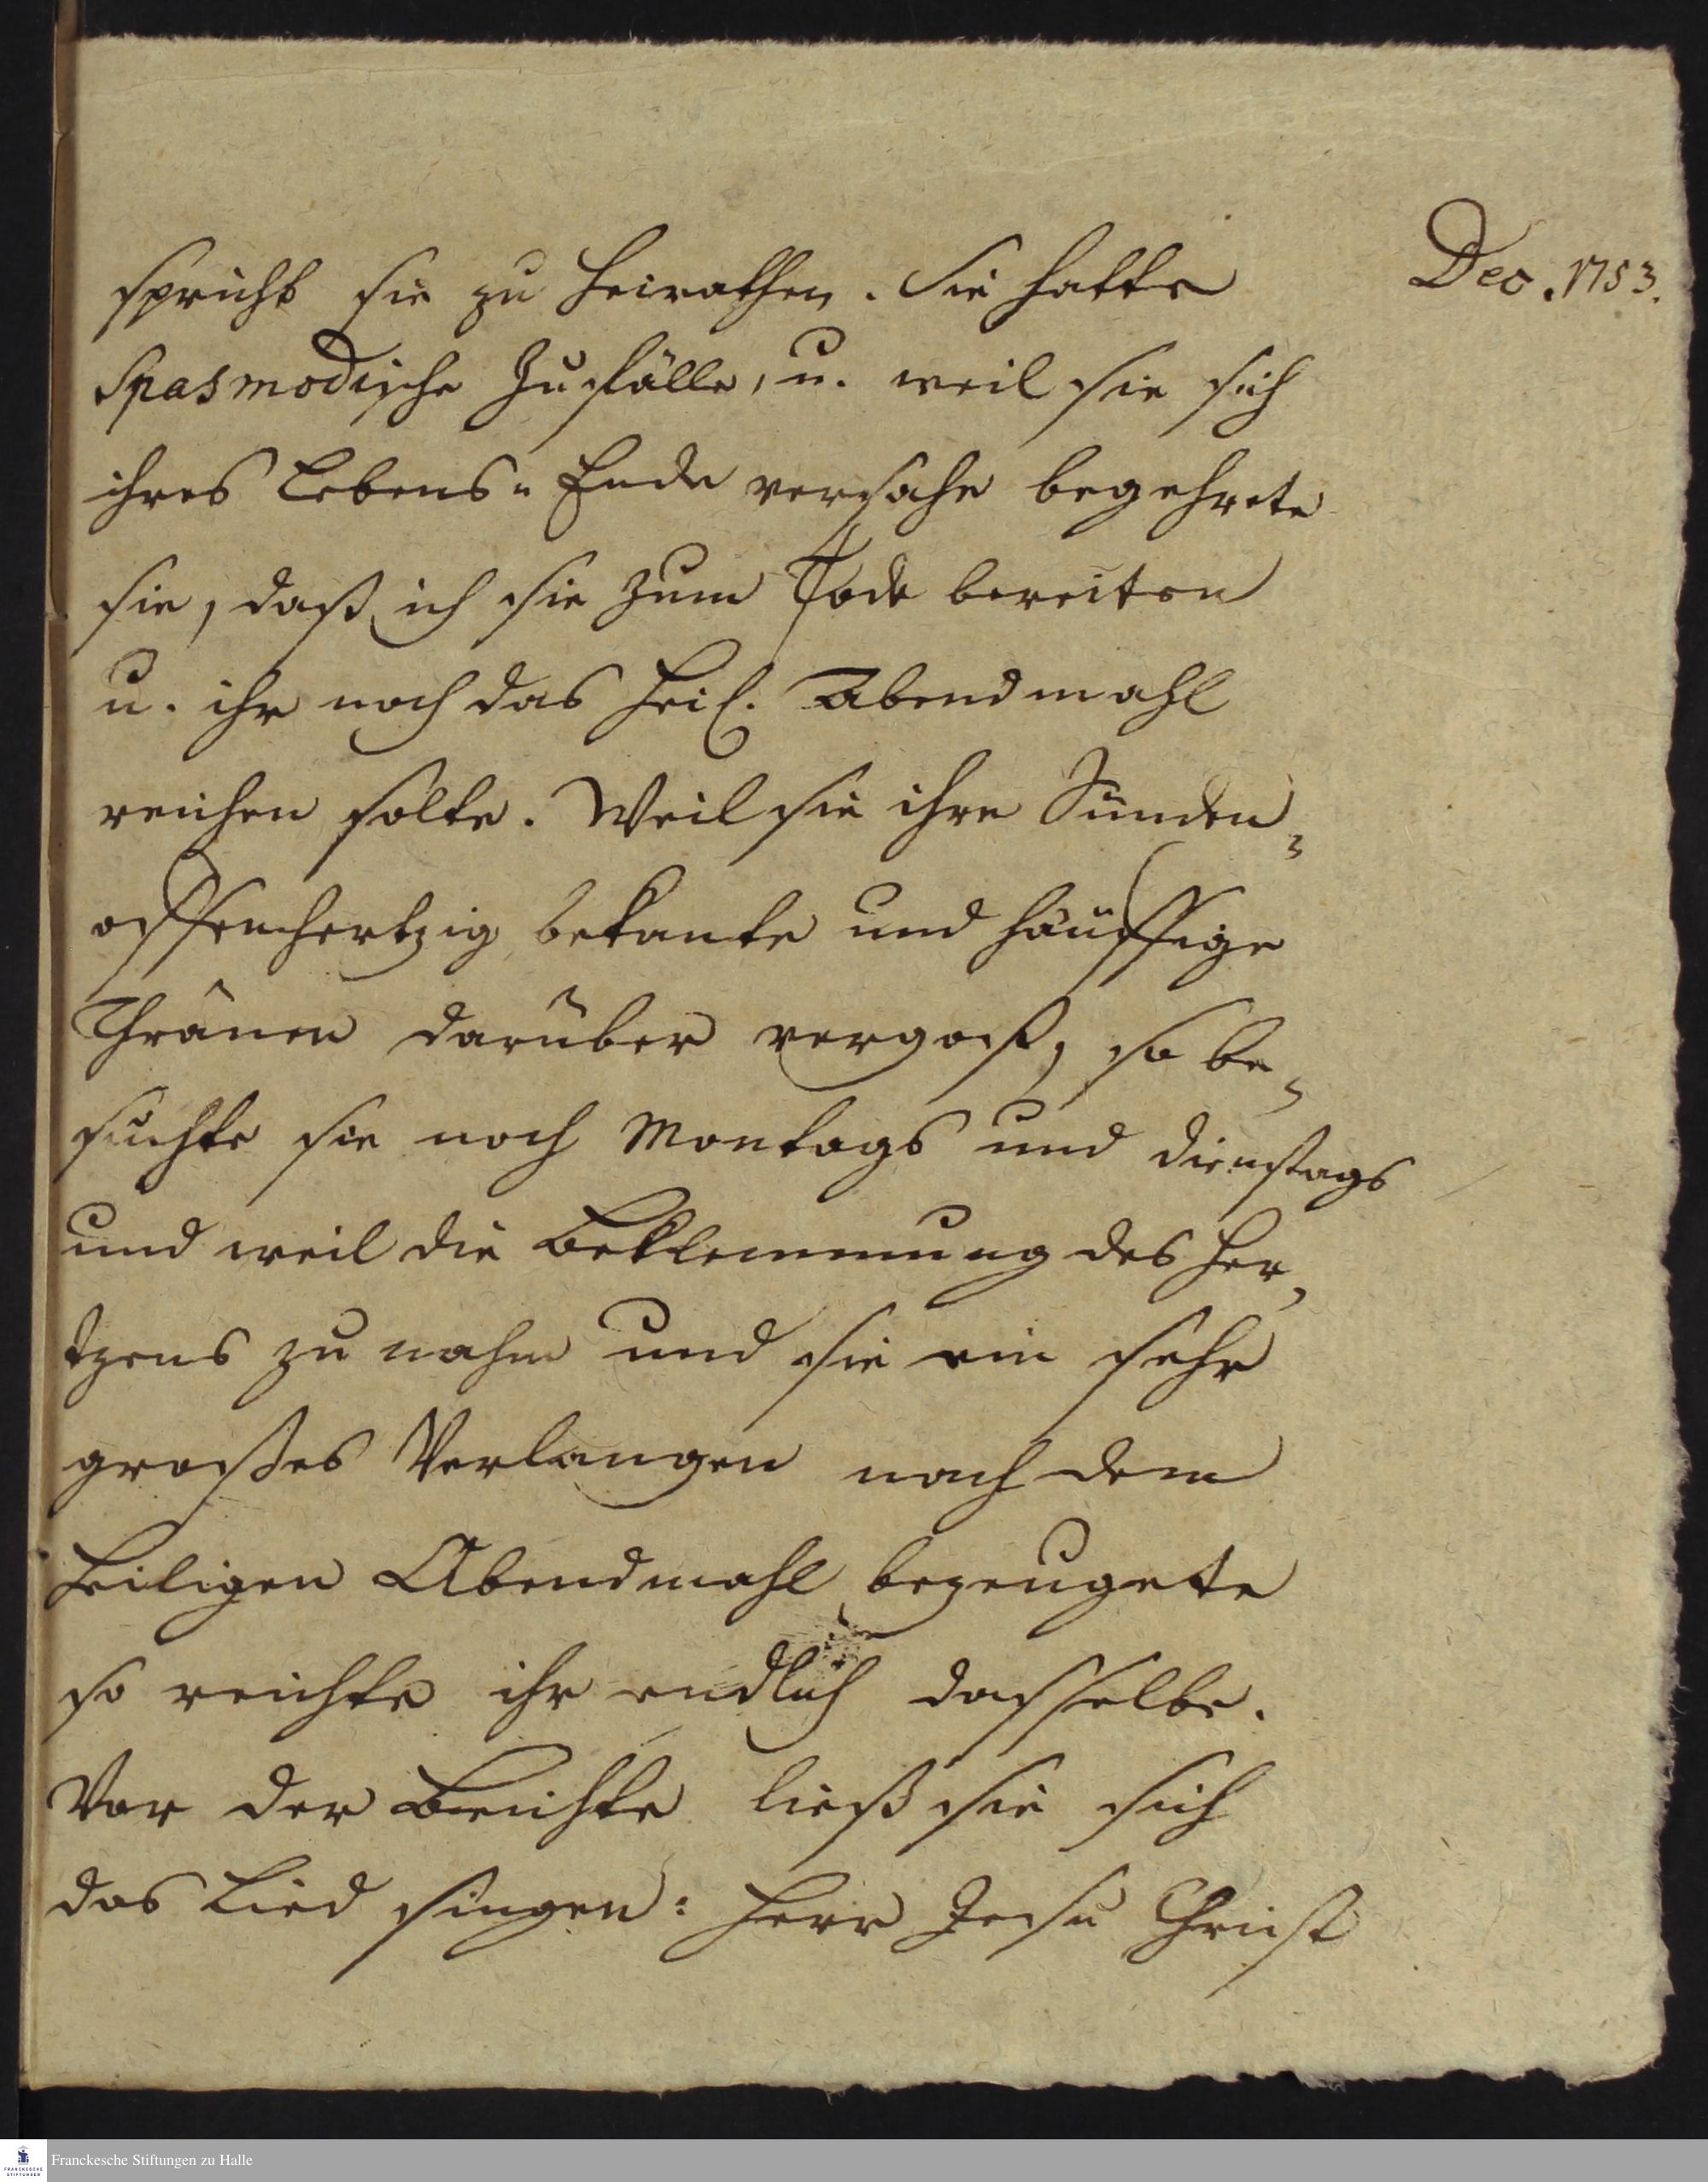 Dec. 1753.
spricht sie zu heirathen. Sie hatte
Spasmodische Zufälle, u. weil sie sich
ihres Lebens-Ende versahe begehrete
sie, daß ich sie zum Tode bereiten
u. ihr noch das heil. Abendmahl
reichen solte. Weil sie ihre Sünden
offenhertzig bekante und häuffige
Thränen darüber vergoß, so be-
suchte sie noch Montags und Dienstags
und weil die Beklemmung des Her-
tzens zu nahm und sie ein sehr
großes Verlangen nach dem
heiligen Abendmahl bezeugete
so reichte ihr endlich dasselbe.
Vor der Beichte ließ sie sich
das Lied singen: Herr Jesu Christ
Franckesche Stiftungen zu Halle
FRANCKESCHE
STIFTUNGEN